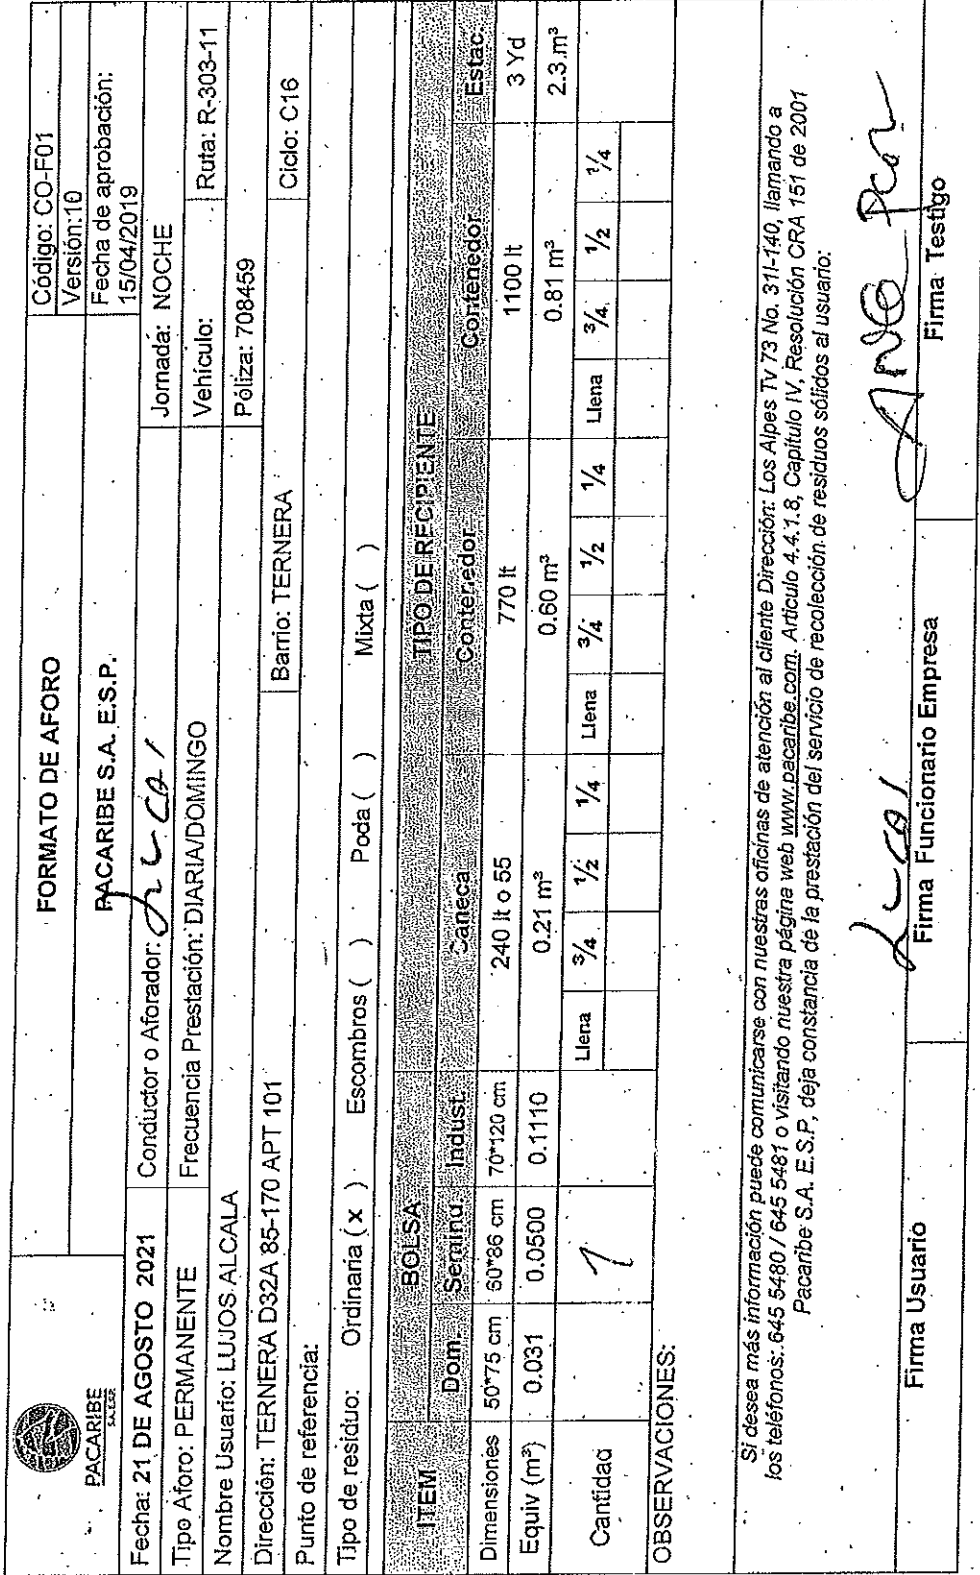 PACARIBE
S.A. E.S.P.
FORMATO DE AFORO
PACARIBE S.A. E.S.P.
Código: CO-F01
Versión:10
Fecha de aprobación:
15/04/2019
Fecha: 21 DE AGOSTO 2021 Conductor o Aforador: Lucas Jornada: NOCHE
Tipo Aforo: PERMANENTE Frecuencia Prestación: DIARIA/DOMINGO Vehículo: Ruta: R-303-11
Nombre Usuario: LUJOS ALCALA Póliza: 708459
Dirección: TERNERA D32A 85-170 APT 101 Barrio: TERNERA Ciclo: C16
Punto de referencia:
Tipo de residuo: Ordinaria ( x ) Escombros ( ) Poda ( ) Mixta ( )
ITEM BOLSA TIPO DE RECIPIENTE
Dom. Seminu. Indust. Caneca Contenedor Contenedor Estac.
Dimensiones 50*75 cm 60*86 cm 70*120 cm 240 lt o 55 770 lt 1100 lt 3 Yd
Equiv (m³) 0.031 0.0500 0.1110 0.21 m³ 0.60 m³ 0.81 m³ 2.3.m³
Cantidad 1 Llena ¾ ½ ¼ Llena ¾ ½ ¼ Llena ¾ ½ ¼
OBSERVACIONES:
Si desea más información puede comunicarse con nuestras oficinas de atención al cliente Dirección: Los Alpes Tv 73 No. 31I-140, llamando a
los teléfonos: 645 5480 / 645 5481 o visitando nuestra página web www.pacaribe.com. Artículo 4.4.1.8, Capítulo IV, Resolución CRA 151 de 2001
Pacaribe S.A. E.S.P, deja constancia de la prestación del servicio de recolección de residuos sólidos al usuario:
Firma Usuario Firma Funcionario Empresa Firma Testigo